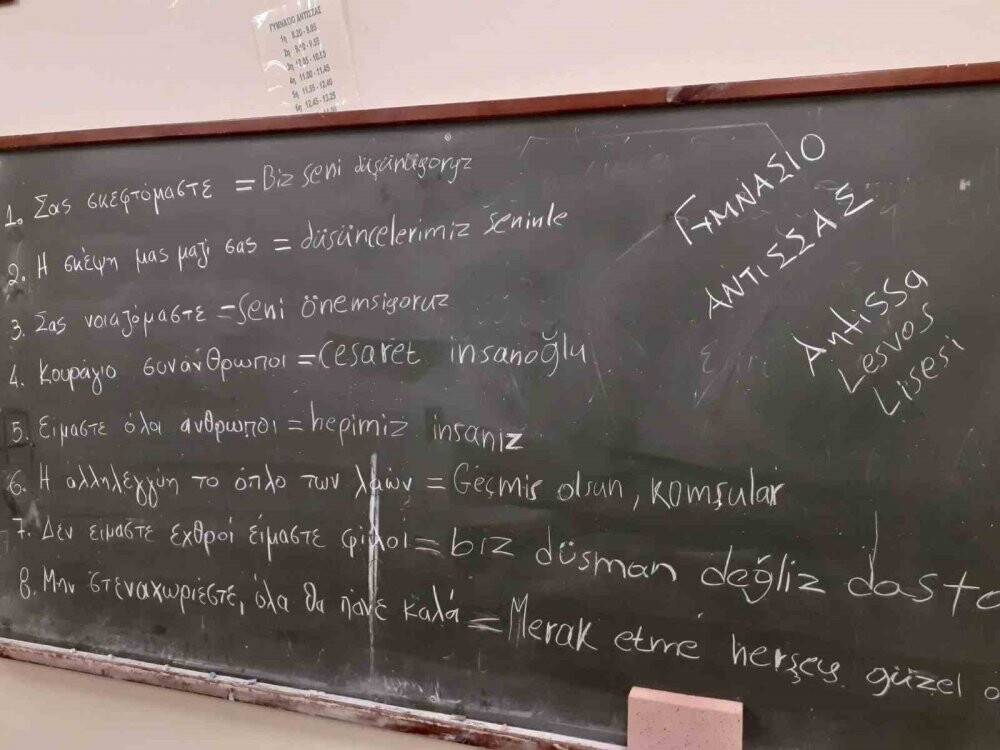 ΓΥΜΝΑΣΙΟ ΑΝΤΙΣΣΑΣ
1η 8.20 - 9.05
2η 9.10 - 9.55
4η 11.00 - 11.45
5η 11.55 - 12.40
6η 12.45 - 13.25
1. Σας σκεφτόμαστε = Biz seni düşünüyoryz
2. Η σκέψη μας μαζί σας = düşüncelerimiz seninle
3. Σας νοιαζόμαστε = Seni önemsiyoruz
4. Κουράγιο συνάνθρωποι = Cesaret insanoğlu
5. Είμαστε όλοι άνθρωποι = hepimiz insaniz
6. Η αλληλεγγύη το όπλο των λαών = Geçmis olsun, komşular
7. Δεν είμαστε εχθροί είμαστε φίλοι = biz düsman değliz dosto
8. Μην στεναχωριέστε, όλα θα πάνε καλά = Merak etme herşey güzel o
ΓΥΜΝΑΣΙΟ
ΑΝΤΙΣΣΑΣ
Antissa
Lesvos
Lisesi